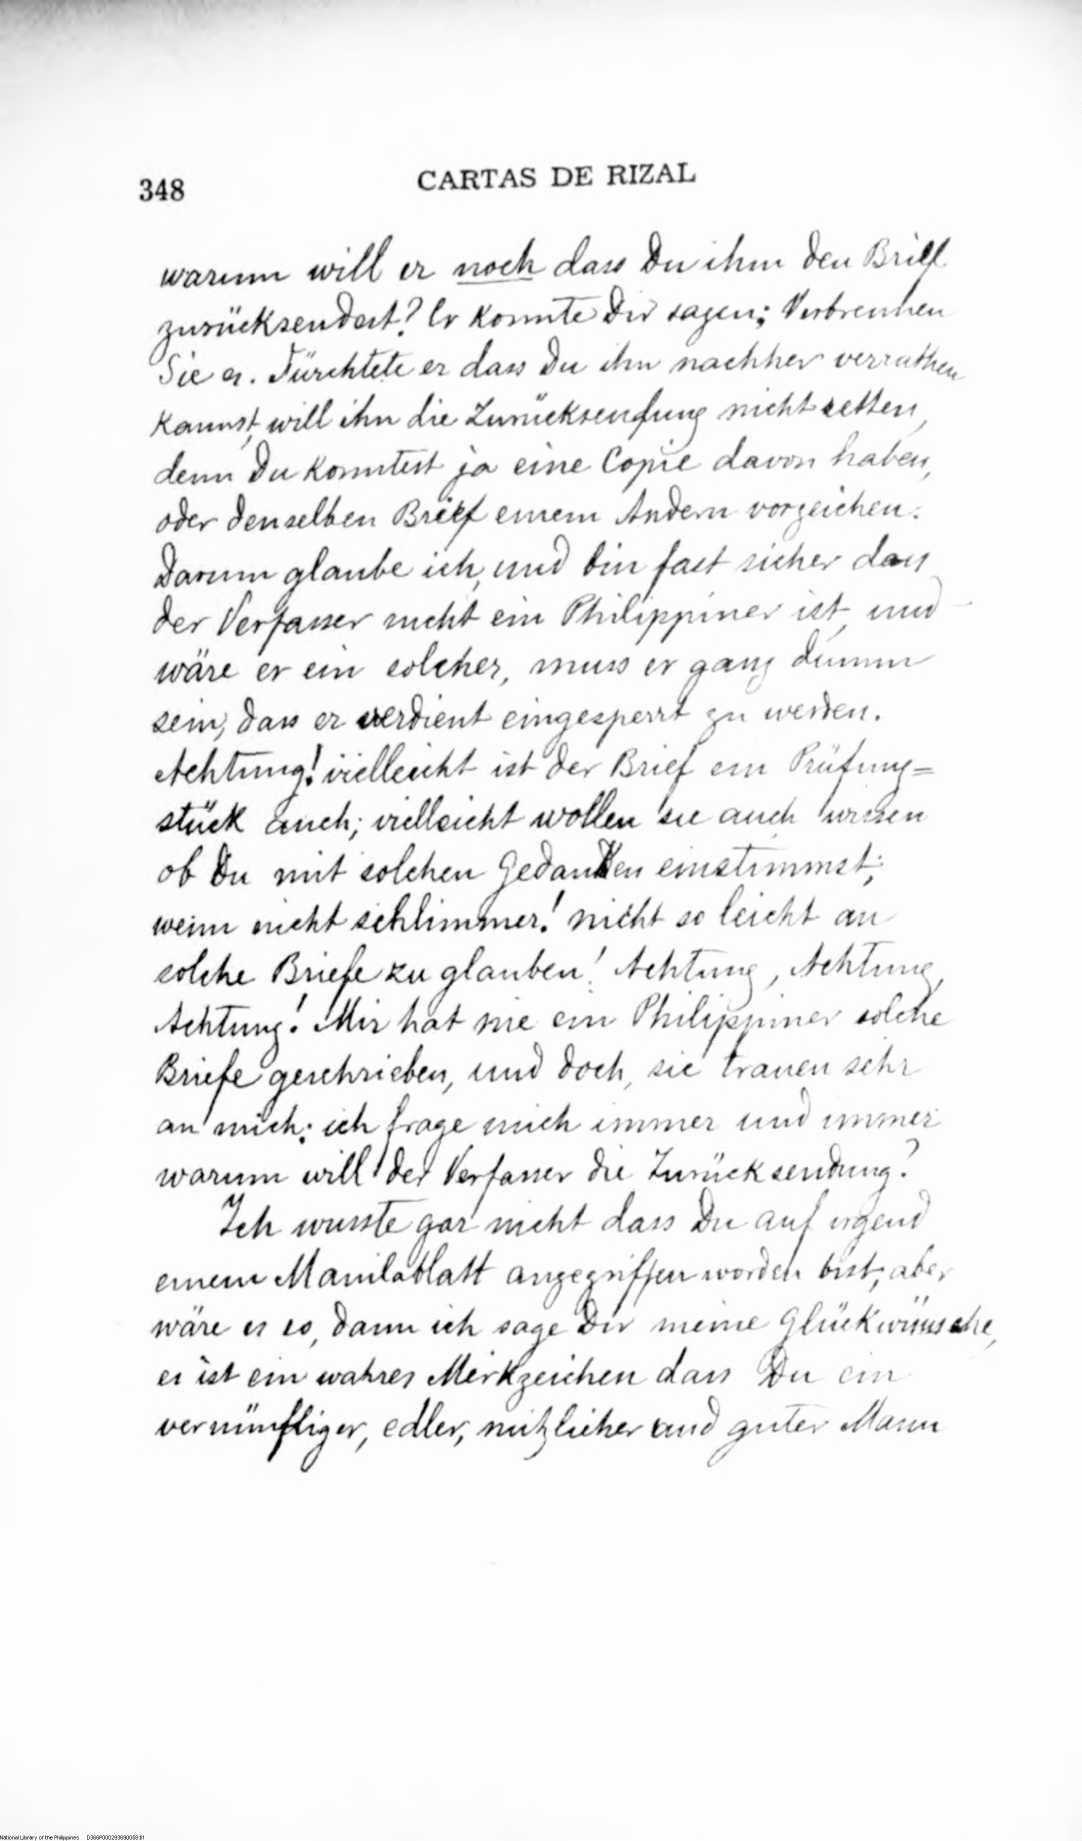 348
CARTAS DE RIZAL
warum will er noch dass Du ihm den Brief
zurücksendest? Er konnte Dir sagen; Verbrennen
Sie es. Fürchtete er dass Du ihn nachher verrathen
kannst, will ihn die Zurücksendung nicht retten,
denn Du konntest ja eine Copie davon haben,
oder denselben Brief einem Andern vorzeichen.
Darum glaube ich, und bin fast sicher dass
der Verfasser nicht ein Philippiner ist, und
wäre er ein solcher, muss er ganz dumm
sein, dass er verdient eingesperrt zu werden.
Achtung! vielleicht ist der Brief ein Prüfung=
stück auch; vielleicht wollen sie auch wissen
ob Du mit solchen Gedanken einstimmst;
wenn nicht schlimmer! nicht so leicht an
solche Briefe zu glauben! Achtung, Achtung,
Achtung! Mir hat nie ein Philippiner solche
Briefe geschrieben, und doch, sie trauen sehr
an mich; ich frage mich immer und immer
warum will der Verfasser die Zurücksendung?
Ich wusste gar nicht dass Du auf irgend
einem Manilablatt angegriffen worden bist; aber
wäre es so, dann ich sage Dir meine Glückwünsche,
es ist ein wahres Merkzeichen dass Du ein
vernünftiger, edler, nützlicher und guter Mann
National Library of the Philippines